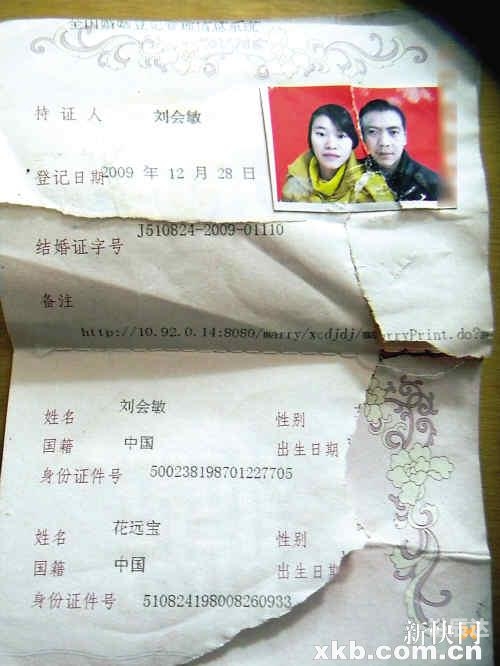 全国婚姻登记管理信息系统
持证人 刘会敏
登记日期 2009 年 12 月 28 日
结婚证字号 J510824-2009-01110
备注
http://10.92.0.14:8080/marry/xcdjdj/marryPrint.do?
姓名 刘会敏 性别
国籍 中国 出生日期
身份证件号 500238198701227705
姓名 花远宝 性别
国籍 中国 出生日期
身份证件号 510824198008260933
新快网
xkb.com.cn